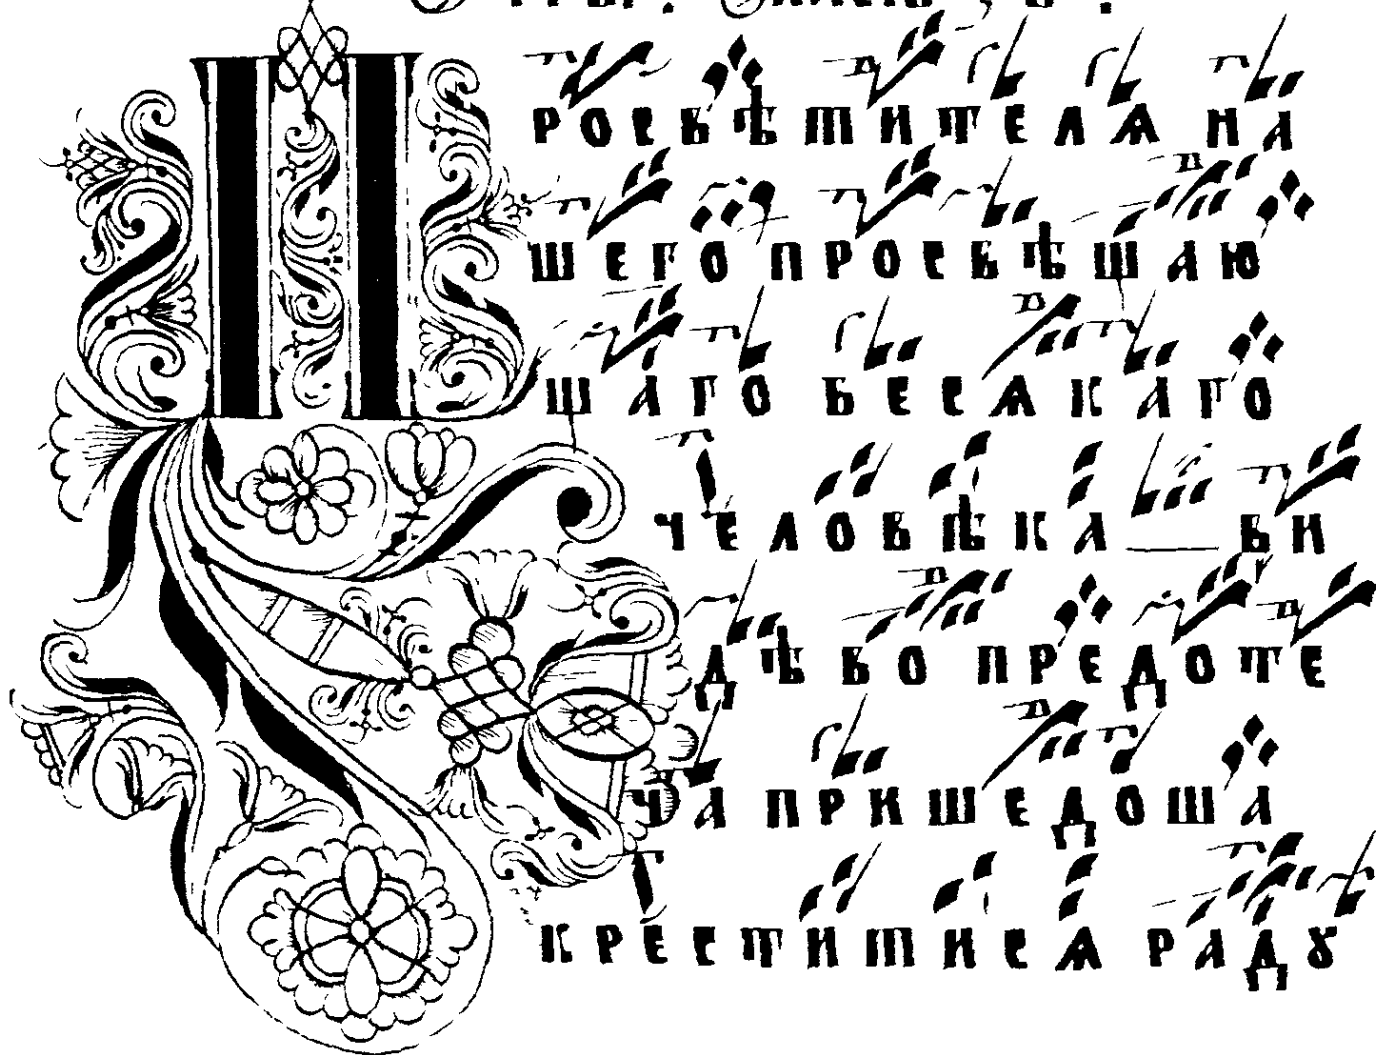 П
росвѣтителѧ на
шего просвѣщаю
щаго всѧкаго
человѣка ви
дѣво предоте
ча пришедоша
креститисѧ раду